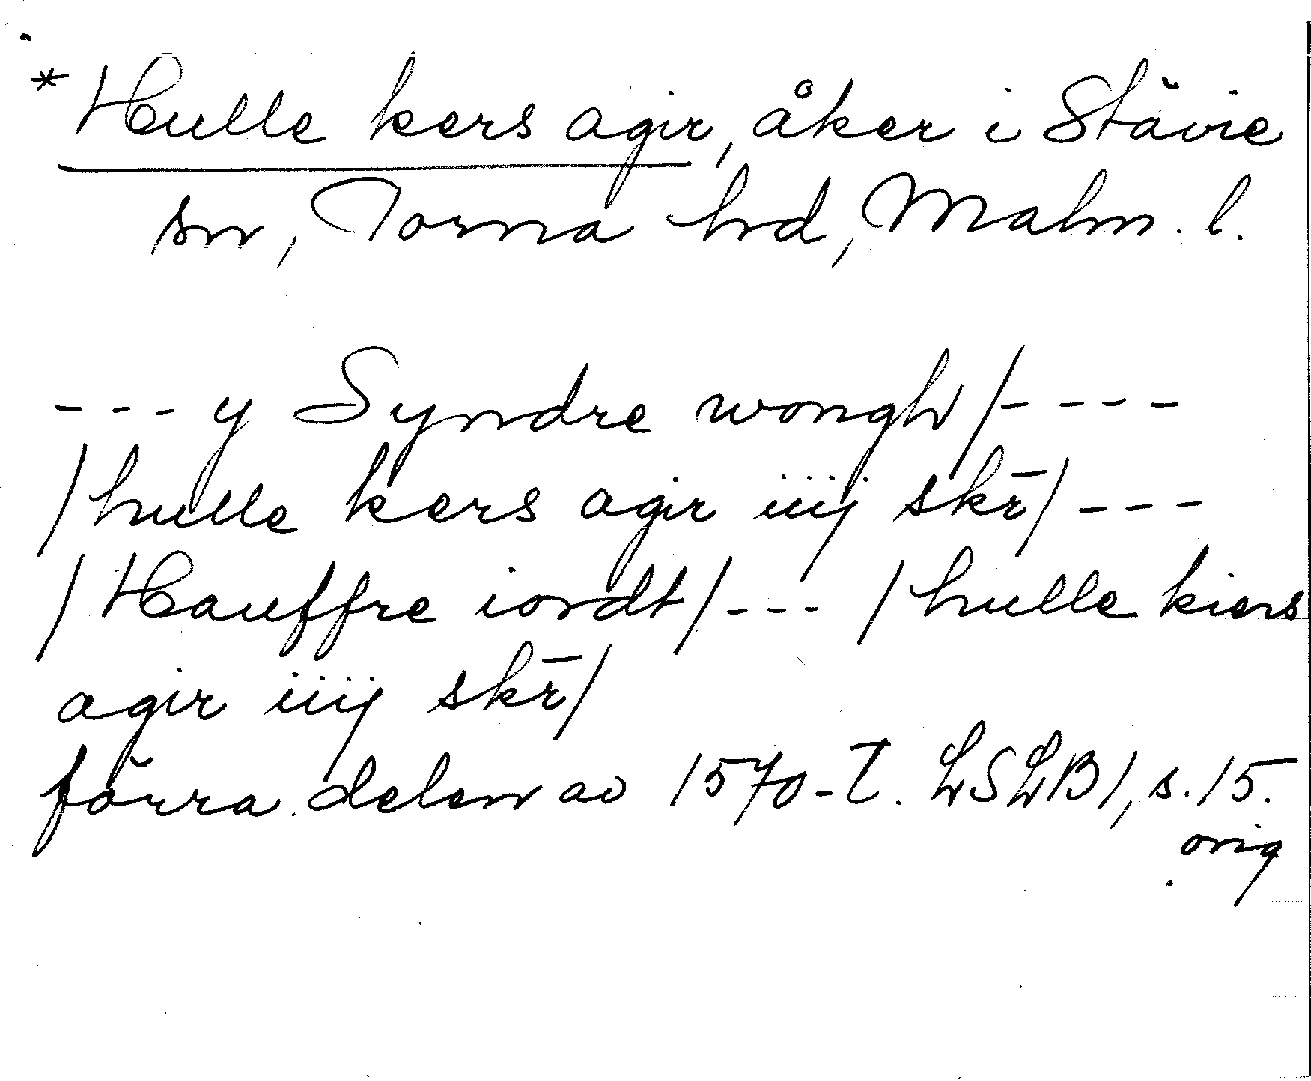 * Hulle kers agir, åker i Stävie
sn, Torna hd, Malm. l.
--- y Syndre wongh/----
/hulle kers agir iiij skr̄/---
/Hauffre iordt/--- /hulle kiers
agir iiij skr̄/
förra delen av 1570-t. LSLB1, s. 15.
orig